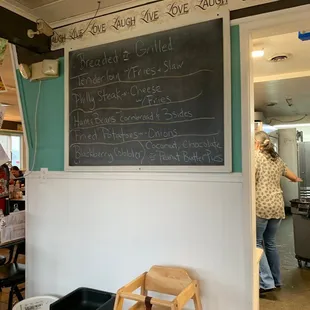 LIVE LOVE LAUGH LIVE LOVE LAUGH LIVE LOVE
Breaded or Grilled
Tenderloin w/Fries + Slaw
Philly Steak + Cheese
w/Fries
Ham & Beans Cornbread & 3 sides
Fried Potatoes + Onions
Blackberry Cobbler Coconut, Chocolate
or Peanut Butter Pies